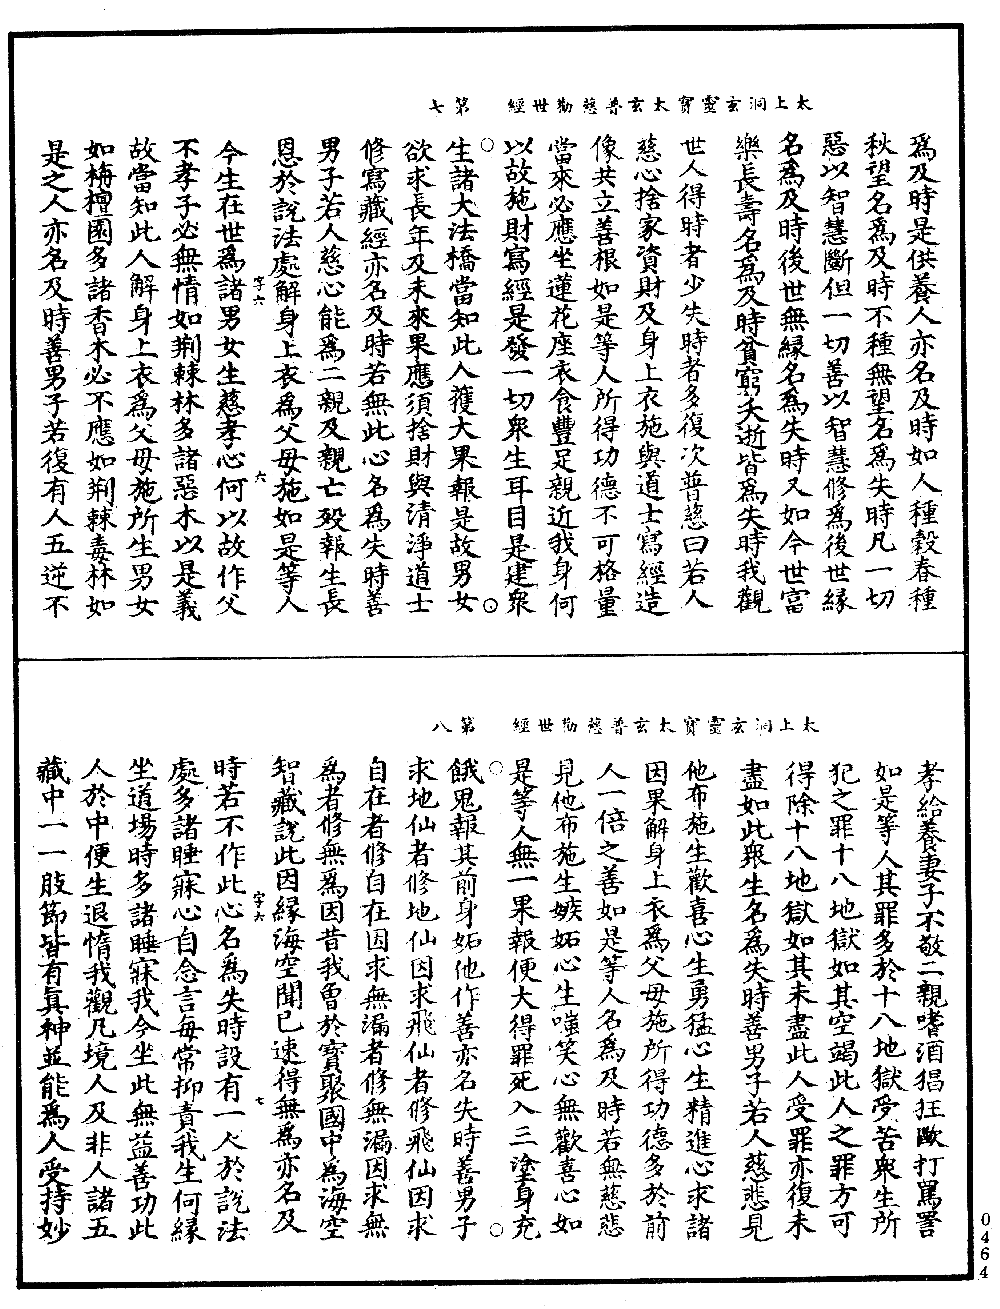 太上洞玄靈寶太玄普慈勸世經　第七
為及時是供養人亦名及時如人種穀春種
秋望名為及時不種無望名為失時凡一切
惡以智慧斷但一切善以智慧修為後世緣
名為及時後世無緣名為失時又如今世富
樂長壽名為及時貧窮夭逝皆為失時我觀
世人得時者少失時者多復次普慈曰若人
慈心捨家資財及身上衣施與道士寫經造
像共立善根如是等人所得功德不可格量
當來必應坐蓮花座衣食豐足親近我身何
以故施財寫經是發一切眾生耳目是建眾
生諸大法橋當知此人獲大果報是故男女
欲求長年及未來果應須捨財與清淨道士
修寫藏經亦名及時若無此心名為失時善
男子若人慈心能為二親及親亡歿報生長
恩於說法處解身上衣為父母施如是等人
字六　六
今生在世為諸男女生慈孝心何以故作父
不孝子必無情如荆棘林多諸惡木以是義
故當知此人解身上衣為父母施所生男女
如栴檀園多諸香木必不應如荆棘毒林如
是之人亦名及時善男子若復有人五逆不
太上洞玄靈寶太玄普慈勸世經　第八
孝給養妻子不敬二親嗜酒猖狂毆打罵詈
如是等人其罪多於十八地獄受苦眾生所
犯之罪十八地獄如其空竭此人之罪方可
得除十八地獄如其未盡此人受罪亦復未
盡如此眾生名為失時善男子若人慈悲見
他布施生歡喜心生勇猛心生精進心求諸
因果解身上衣為父母施所得功德多於前
人一倍之善如是等人名為及時若無慈悲
見他布施生嫉妬心生嗤笑心無歡喜心如
是等人無一果報便大得罪死入三塗身充
餓鬼報其前身妬他作善亦名失時善男子
求地仙者修地仙因求飛仙者修飛仙因求
自在者修自在因求無漏者修無漏因求無
為者修無為因昔我曾於寶聚國中為海空
智藏說此因緣海空聞已速得無為亦名及
字六　七
時若不作此心名為失時設有一人於說法
處多諸睡寐心自念言每常抑責我生何緣
坐道場時多諸睡寐我今坐此無益善功此
人於中便生退惰我觀凡境人及非人諸五
藏中一一肢節皆有真神並能為人受持妙
0464